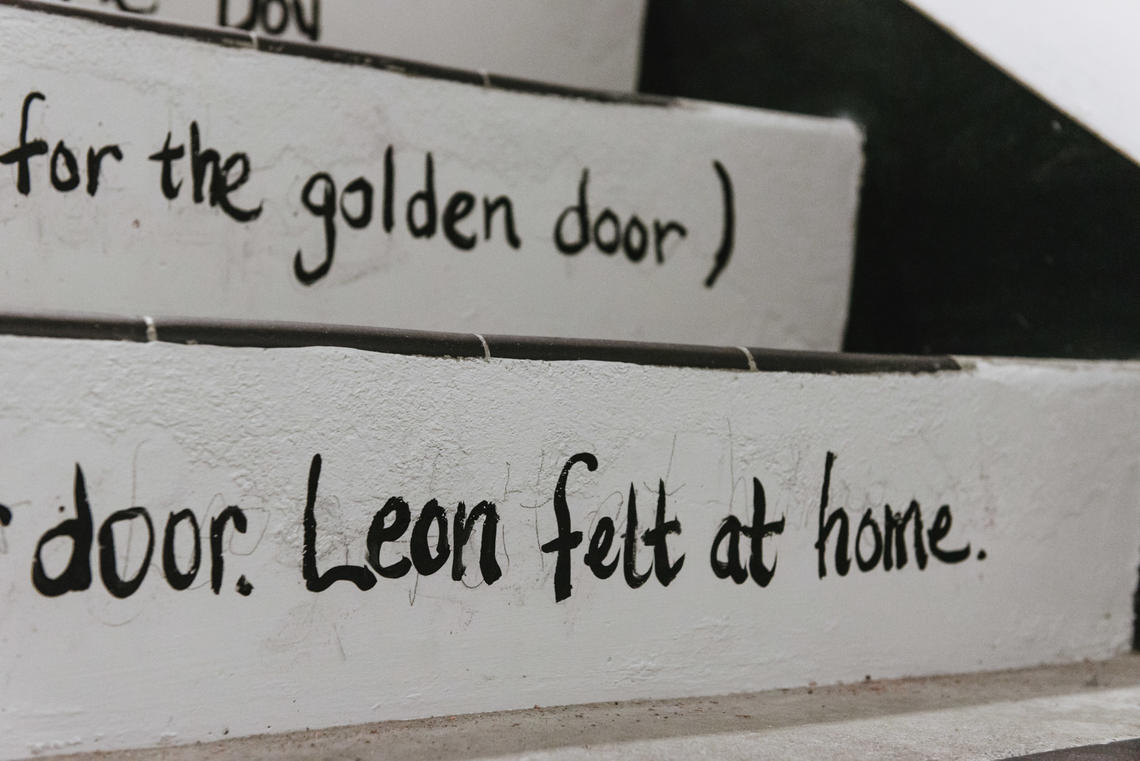 for the golden door )
door. Leon felt at home.